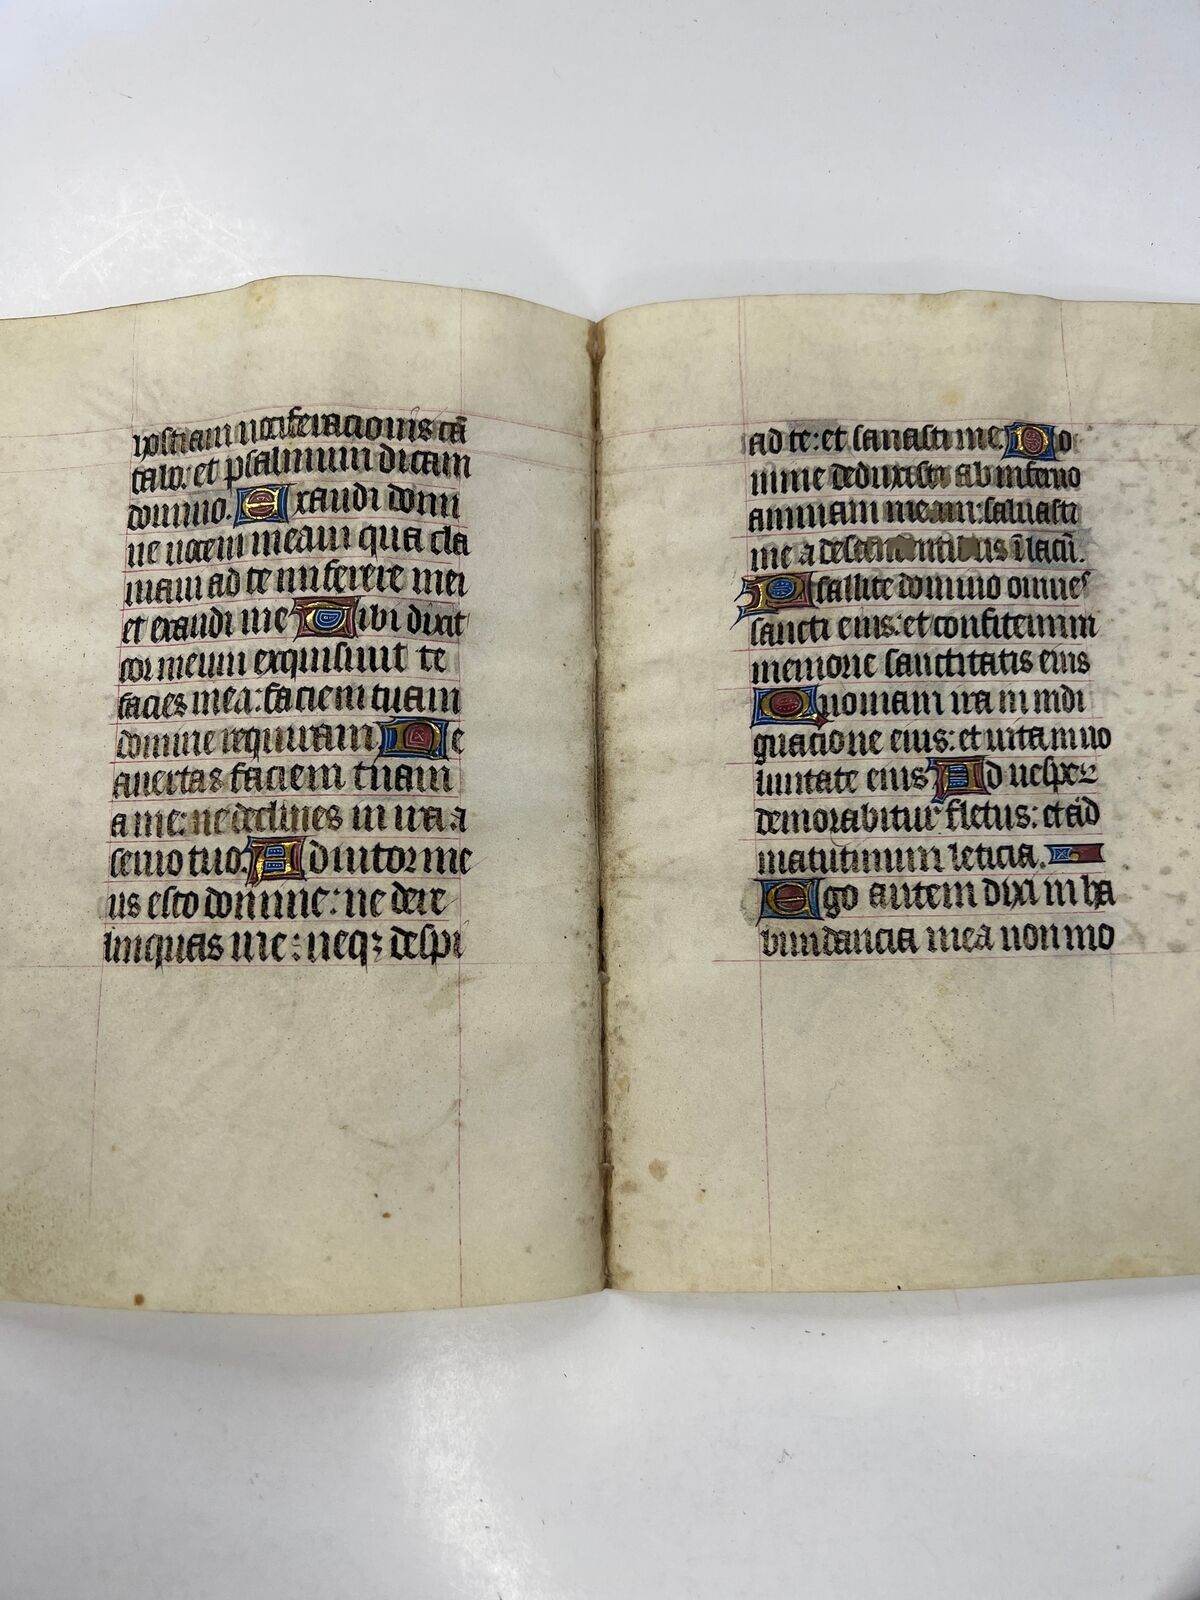 hostiam uociferacionis cā
tabo: et psalmum dicam
domino. Exaudi domi
ne uocem meam qua cla
maui ad te miserere mei
et exaudi me Tibi dixit
cor meum exquisiuit te
facies mea: faciem tuam
domine requiram. Ne
auertas faciem tuam
a me: ne declines in ira a
seruo tuo. Adiutor me
us esto domine: ne dere
linquas me: neqꝫ despi
ad te: et sanasti me. Do
mine deduxisti ab inferno
animam meam: saluasti
me a descendentibus ī lacū.
Psallite domino omnes
sancti eius: et confitemini
memorie sanctitatis eius
Quoniam ira in indi
gnacione eius: et uita in uo
luntate eius Ad uesperꝫ
demorabitur fletus: et ad
matutinum leticia.
Ego autem dixi in ha
bundancia mea non mo